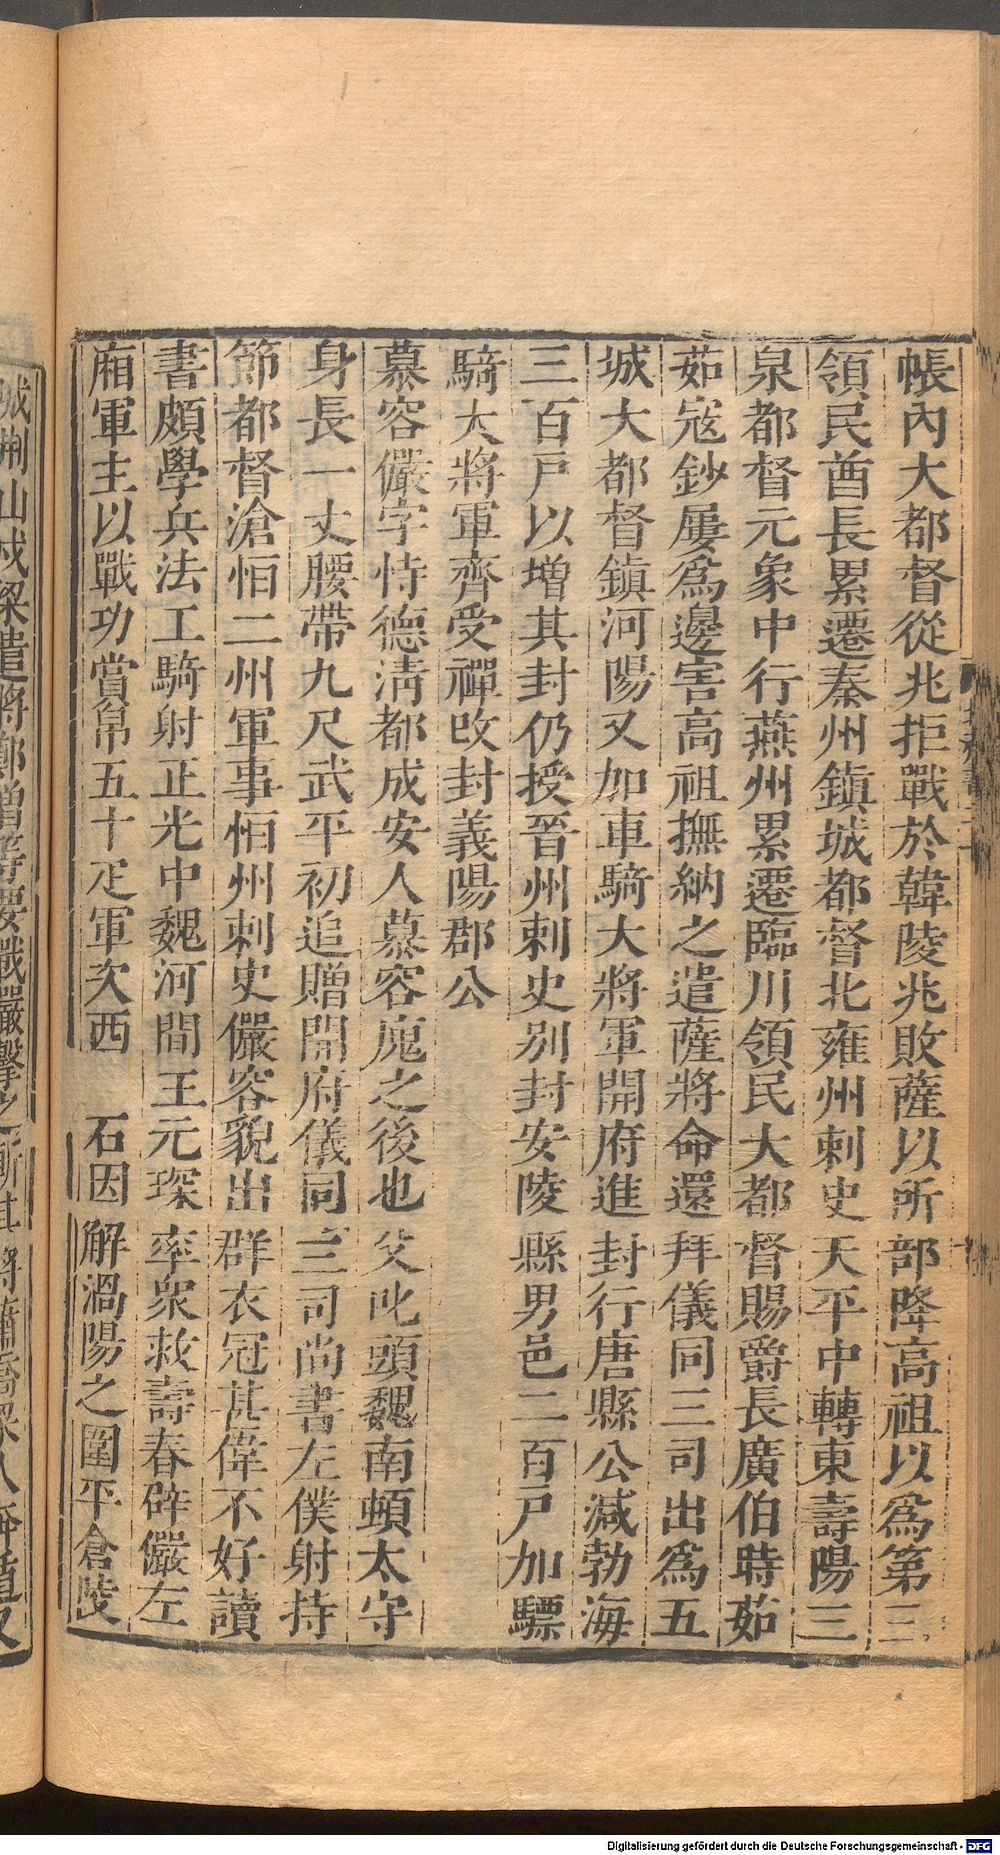 帳內大都督從兆拒戰於韓陵兆敗薩以所部降高祖以爲第三
領民酋長累遷秦州鎮城都督北雍州刺史天平中轉東壽陽三
泉都督元象中行燕州累遷臨川領民大都督賜爵長廣伯時茹
茹寇鈔屢爲邊害高祖撫納之遣薩將命還拜儀同三司出爲五
城大都督鎮河陽又加車騎大將軍開府進封行唐縣公減勃海
三百戸以增其封仍授晉州刺史別封安陵縣男邑二百戸加驃
騎大將軍齊受禪攺封義陽郡公
慕容儼字恃德淸都成安人慕容廆之後也父叱頭魏南頓太守
身長一丈腰帶九尺武平初追贈開府儀同三司尚書左僕射持
節都督滄恒二州軍事恒州刺史儼容貌出群衣冠甚偉不好讀
書頗學兵法工騎射正光中魏河間王元琛率衆救壽春辟儼左
廂軍主以戰功賞帛五十疋軍次西石因解渦陽之圍平倉陵
城荆山戍梁遣將鄭僧等要戰儼擊之斬其將蕭喬梁人奔遁又
Digitalisierung gefördert durch die Deutsche Forschungsgemeinschaft - DFG